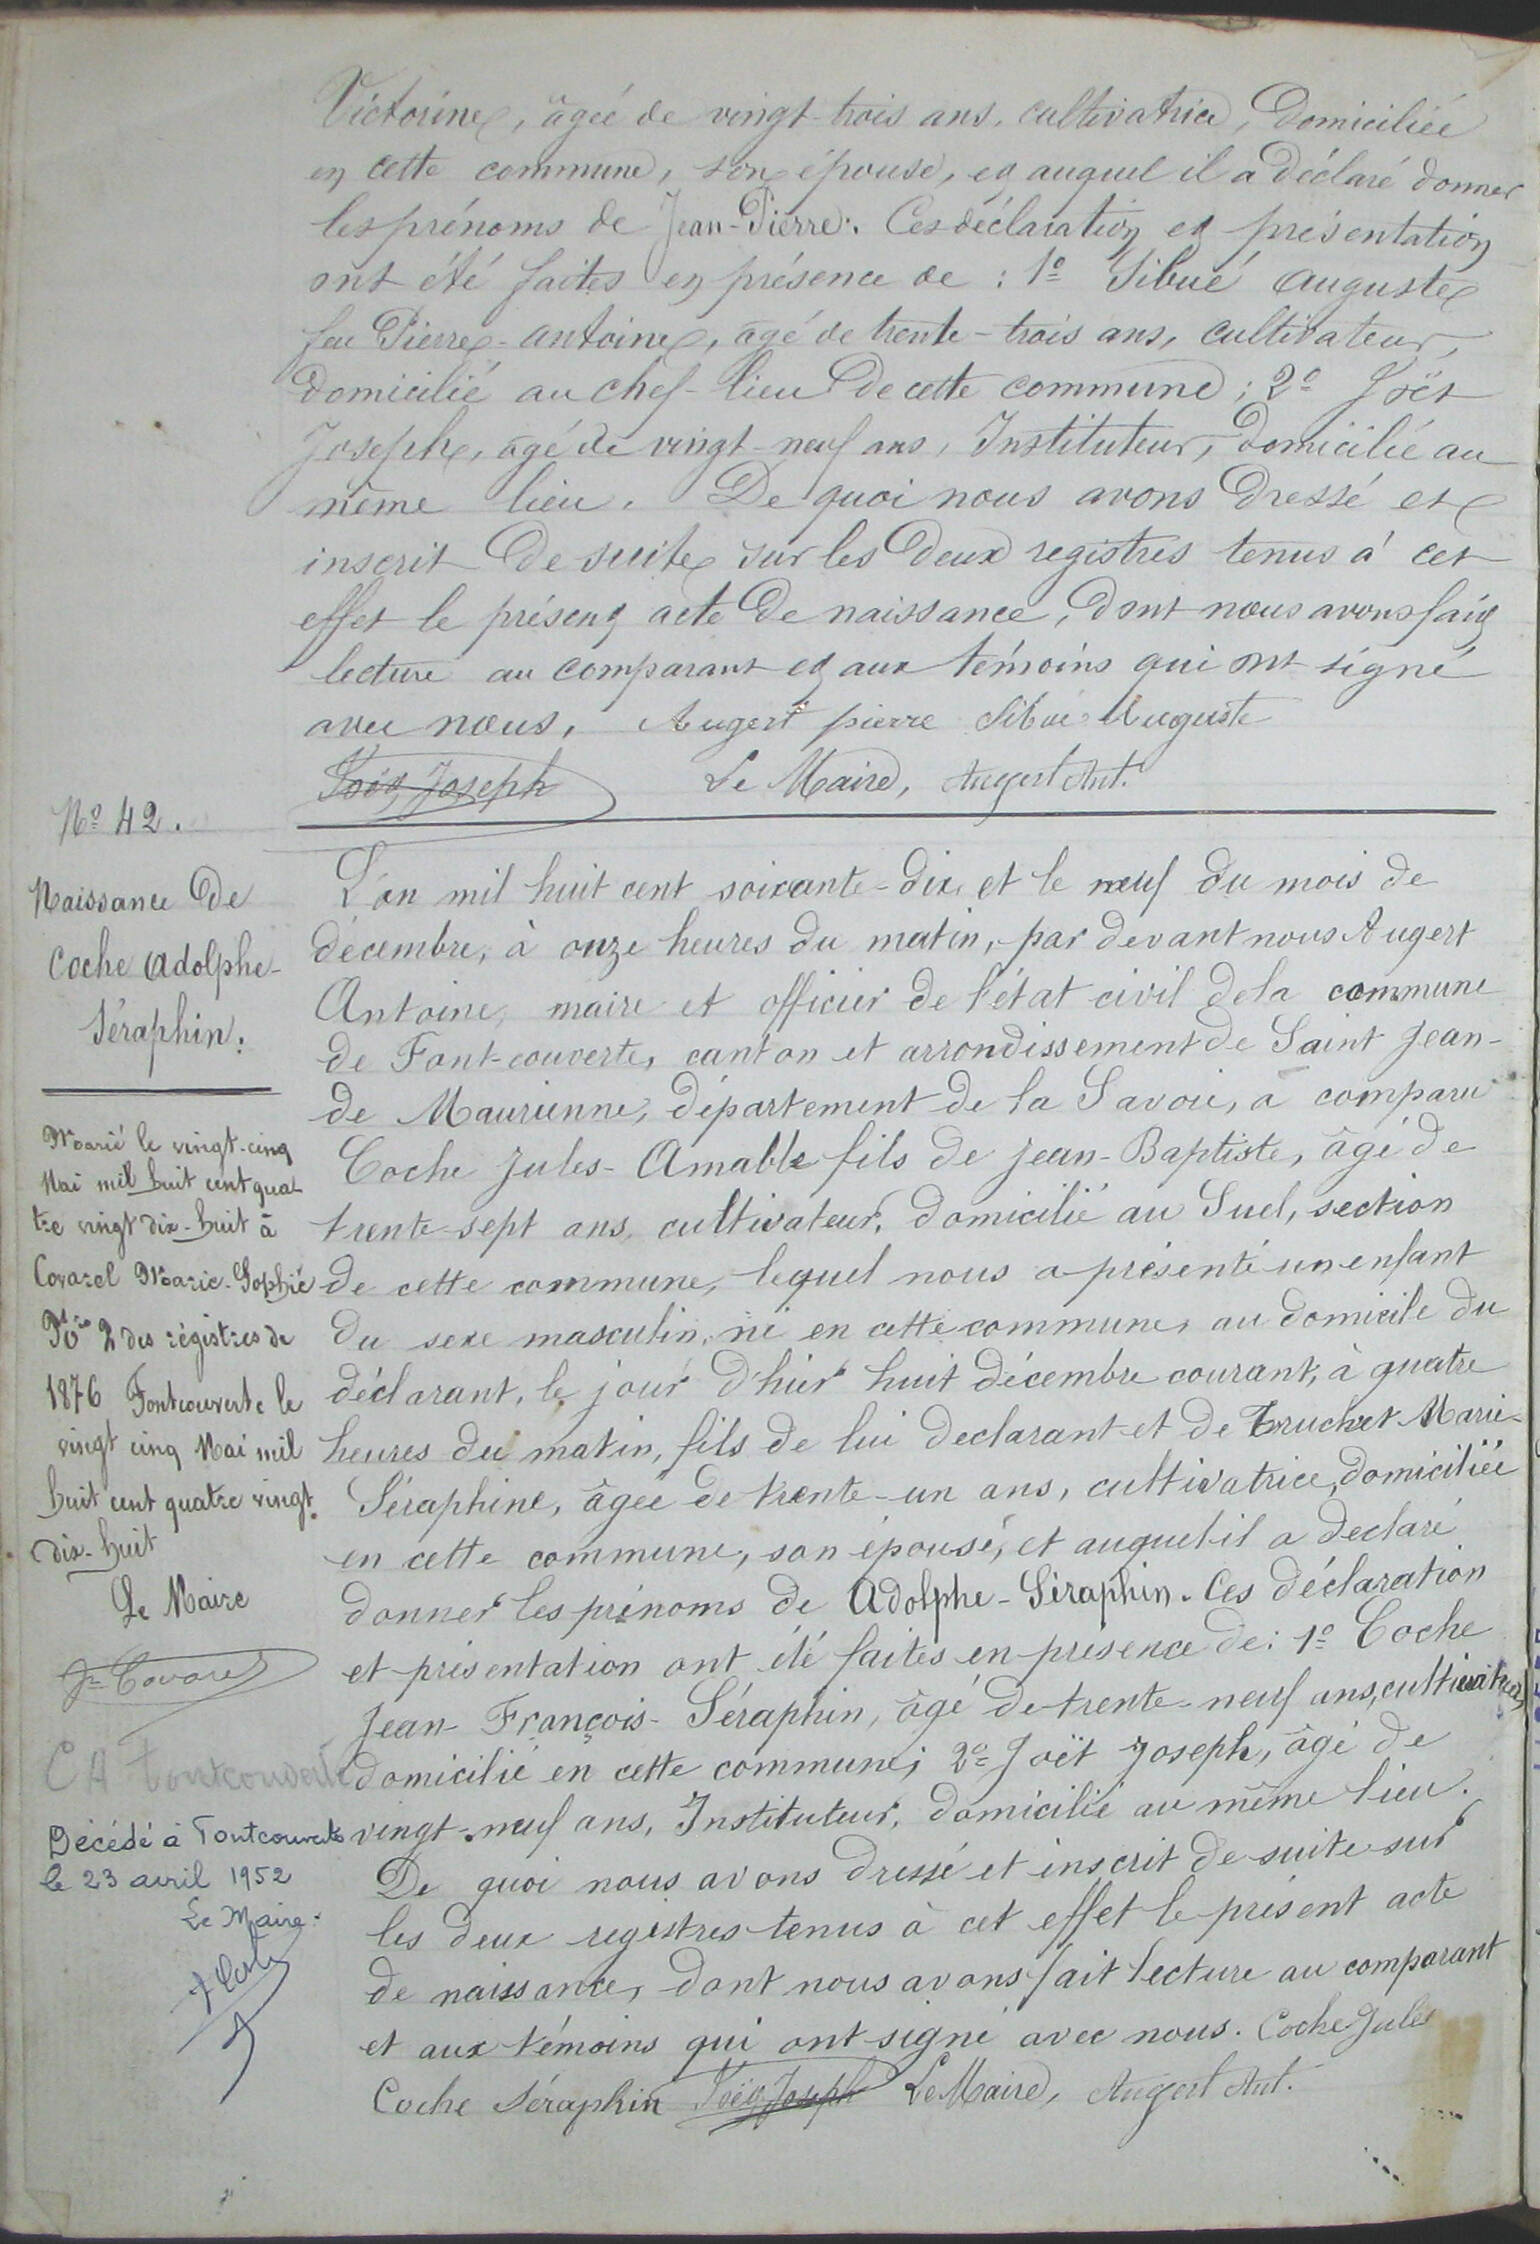 Victorine, âgée de vingt-trois ans, cultivatrice, Domiciliée
en cette commune, son épouse, et auquel il a Déclaré donner
les prénoms de Jean-Pierre. Ces déclaration et présentation
ont été faites en présence de : 1º Sibué Auguste
feu Pierre-Antoine, âgé de trente-trois ans, cultivateur,
Domicilié au chef-lieu De cette commune ; 2º Joët
Joseph, âgé de vingt-neuf ans, Instituteur, Domicilié au
même lieu. De quoi nous avons Dressé et
inscrit De suite sur les Deux registres tenus à cet
effet le présent acte De naissance, Dont nous avons fait
lecture au comparant et aux témoins qui ont signé
avec nous. Augert pierre Sibué Auguste
Joët Joseph Le Maire, Augert Ant.
Nº 42.
Naissance De
Coche Adolphe-
Séraphin.
Marié le vingt-cinq
Mai mil huit cent qua-
tre vingt dix-huit à
Covarel Marie-Sophie
Nº 2 des régistres de
1876 Fontcouverte le
vingt cinq Mai mil
huit cent quatre vingt
dix-huit
Le Maire
Jn Covarel
C A Fontcouverte
Décédé à Fontcouverte
le 23 avril 1952
Le Maire.
L'an mil huit cent soixante-dix et le neuf du mois de
décembre, à onze heures du matin, par devant nous Augert
Antoine, maire et officier de l'état civil de la commune
de Font-couverte, canton et arrondissement de Saint Jean-
de Maurienne, département de la Savoie, a comparu
Coche Jules-Amable fils de Jean-Baptiste, âgé de
trente-sept ans, cultivateur, domicilié au Suel, section
de cette commune, lequel nous a présenté un enfant
du sexe masculin, né en cette commune, au domicile du
déclarant, le jour d'hier huit décembre courant, à quatre
heures du matin, fils de lui declarant et de Truchet Marie-
Séraphine, âgée de trente-un ans, cultivatrice, domiciliée
en cette commune, son épouse, et auquel il a declaré
donner les prénoms de Adolphe-Séraphin. Ces déclaration
et présentation ont été faites en présence de : 1º Coche
Jean-François-Séraphin, âgé de trente-neuf ans, cultivateur,
domicilié en cette commune ; 2º Joët Joseph, âgé de
vingt-neuf ans, Instituteur, domicilié au même lieu.
De quoi nous avons dressé et inscrit de suite sur
les deux registres tenus à cet effet le présent acte
de naissance, dont nous avons fait lecture au comparant
et aux témoins qui ont signé avec nous. Coche Jules
Coche Séraphin Joët Joseph Le Maire, Augert Ant.